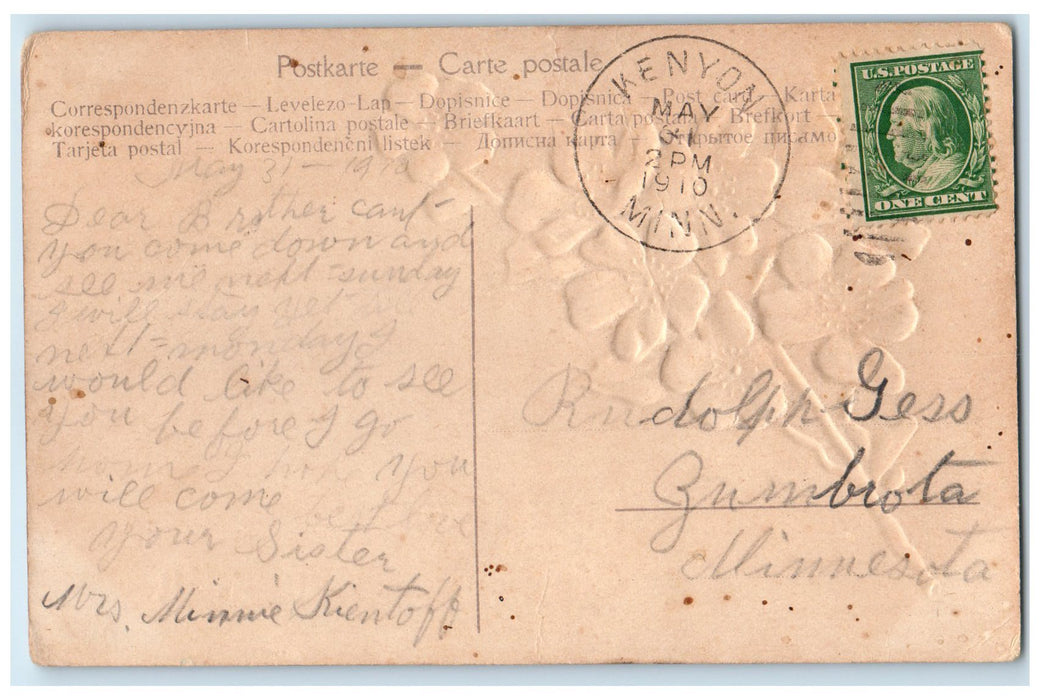 Postkarte — Carte postale
Correspondenzkarte — Levelezo-Lap — Dopisnice — Dopisnica — Post card — Karta
korespondencyjna — Cartolina postale — Briefkaart — Carta postal — Brefkort —
Tarjeta postal — Korespondenční listek — Дописна карта — Открытое письмо
KENYON
MAY
31
2 PM
1910
MINN.
U.S. POSTAGE
ONE CENT
May 31 - 1910
Dear Brother cant
you come down and
see me next = sunday
I will stay yet till
next = monday I
would like to see
you before I go
home I hope you
will come before
your Sister
Mrs. Minnie Kientoff
Rudolph Gess
Zumbrota
Minnesota